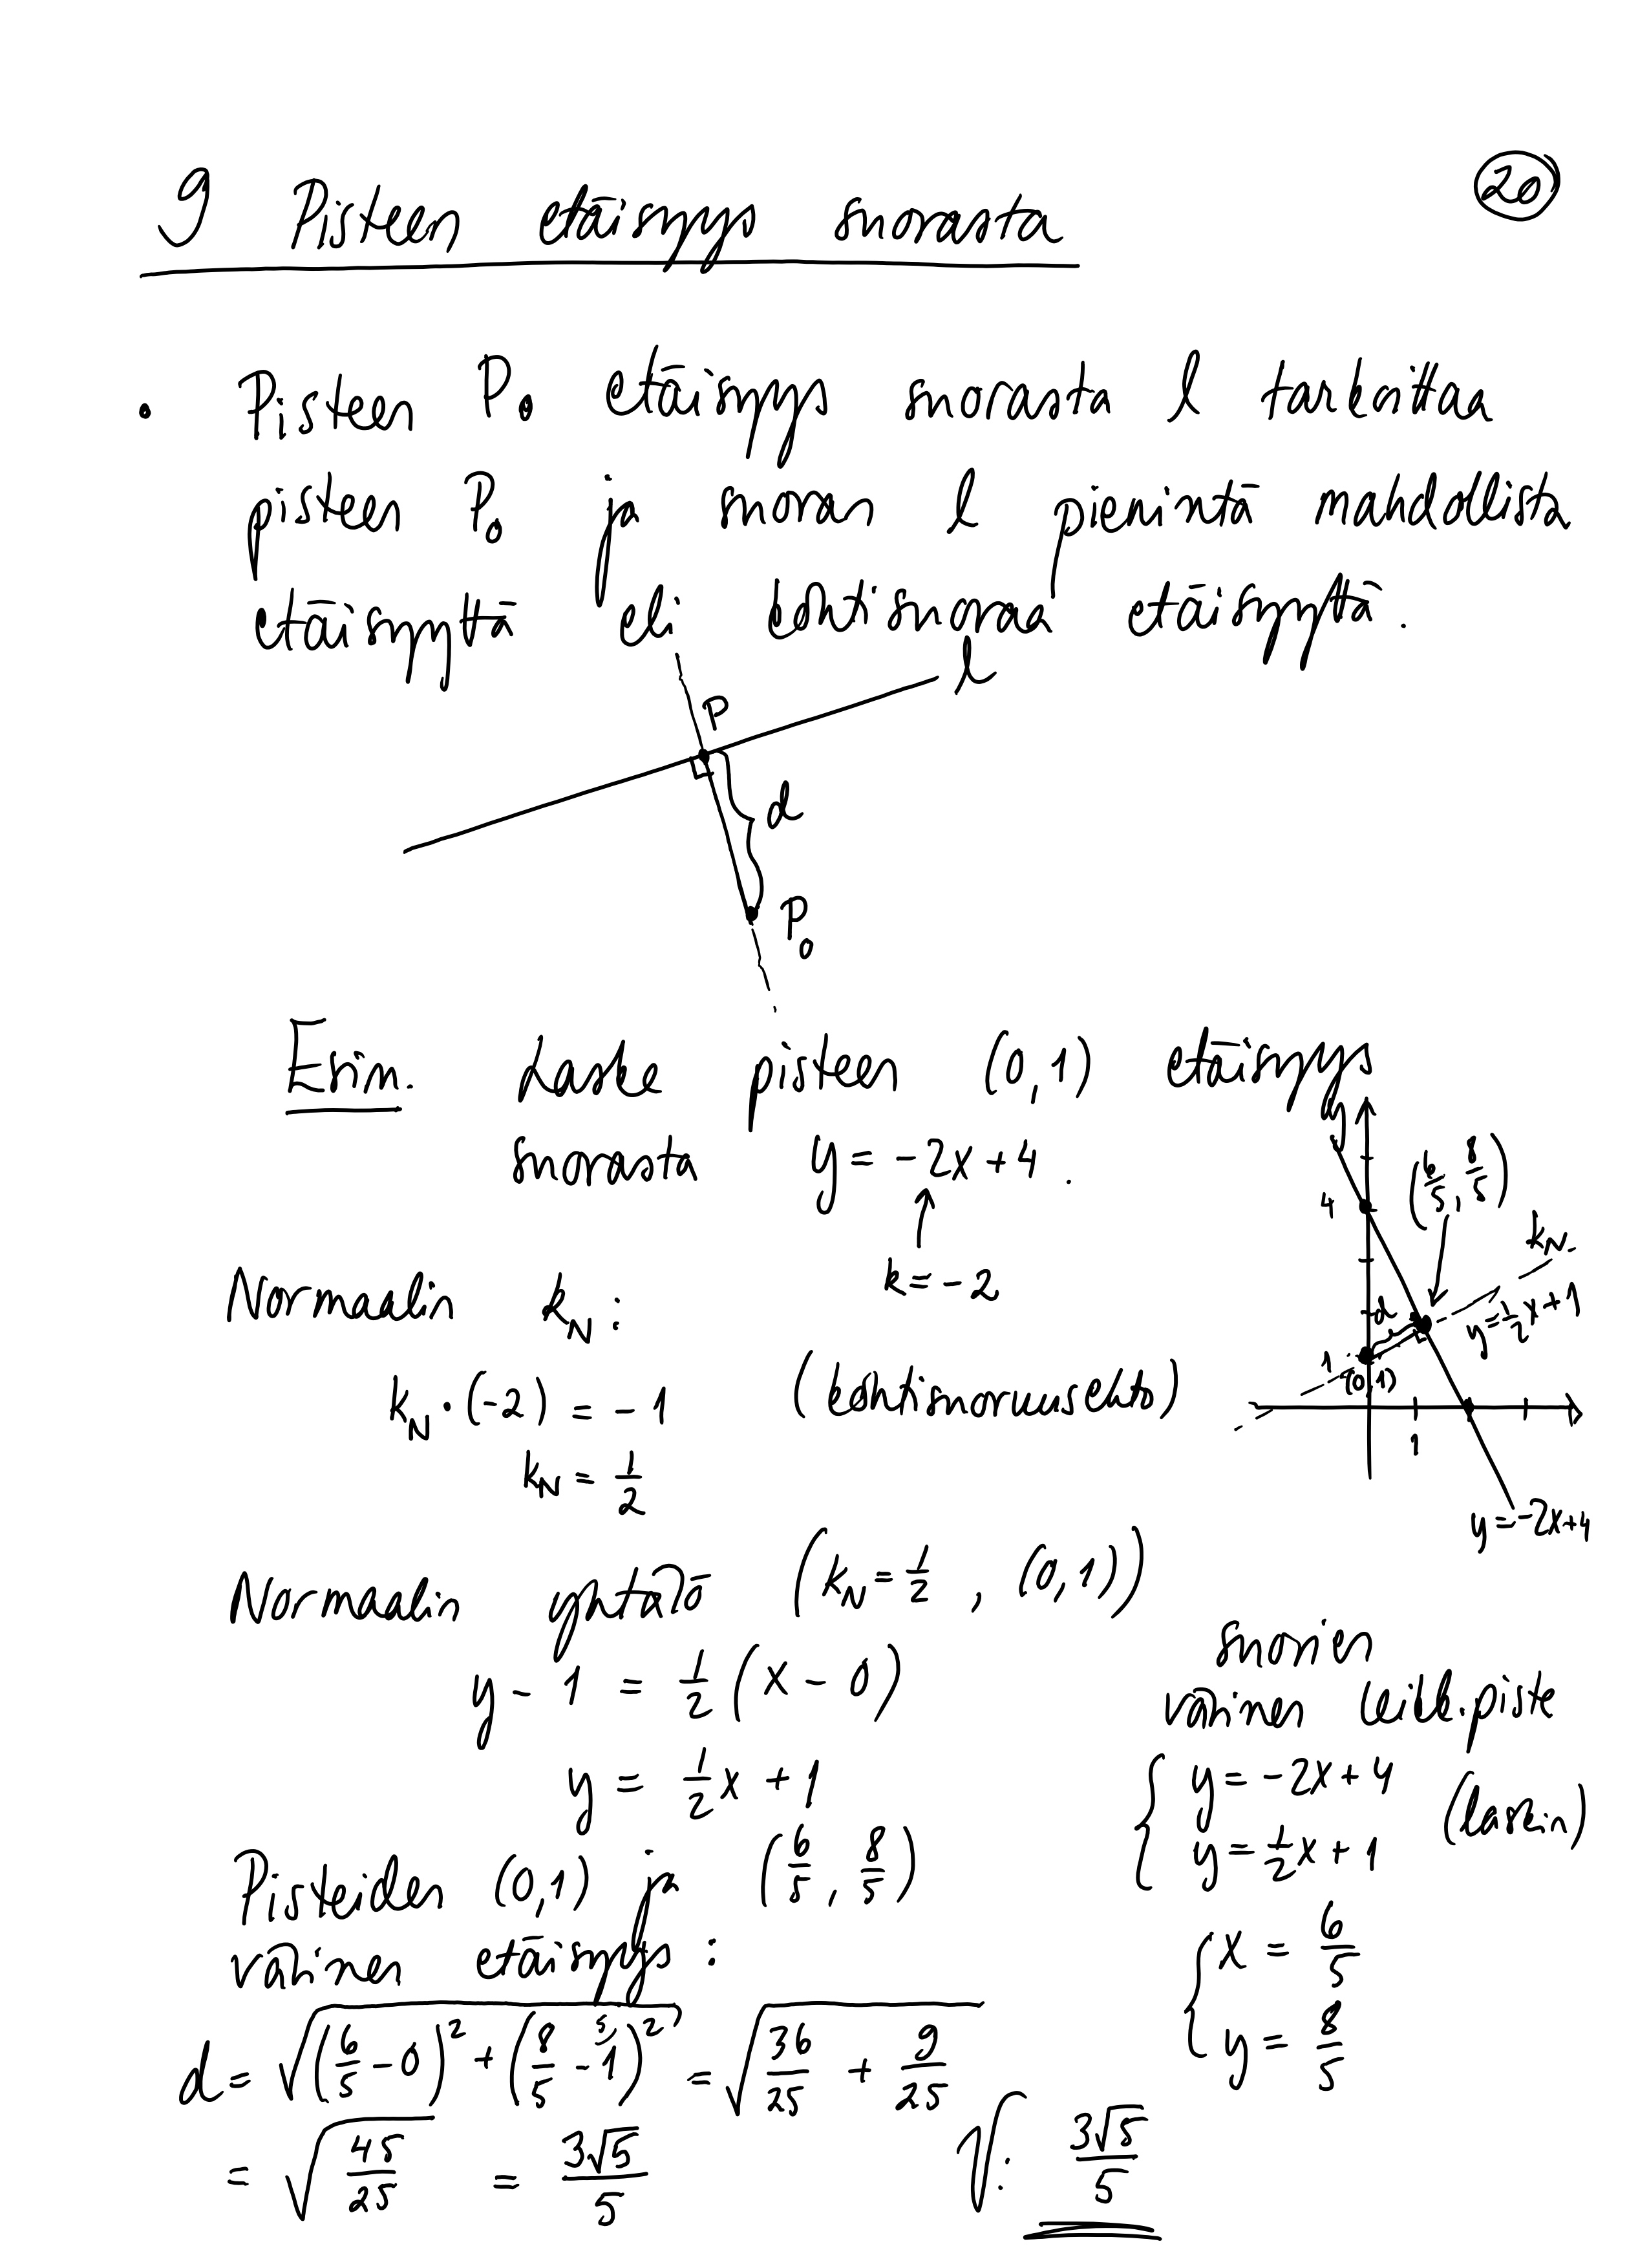 9 Pisteen etäisyys suorasta
20
• Pisteen P₀ etäisyys suorasta l tarkoittaa
pisteen P₀ ja suoran l pienintä mahdollista
etäisyyttä eli kohtisuoraa etäisyyttä.
l
P
d
P₀
Esim. Laske pisteen (0,1) etäisyys
suorasta y = -2x + 4.
k = -2
y
4
(6/5, 8/5)
k_N
d
y = 1/2 x + 1
1
(0,1)
1
y = -2x+4
Normaalin k_N:
k_N · (-2) = -1 (kohtisuoruusehto)
k_N = 1/2
Normaalin yhtälö (k_N = 1/2, (0,1))
y - 1 = 1/2 (x - 0)
y = 1/2 x + 1
suorien
välinen leikk.piste
{ y = -2x + 4
{ y = 1/2 x + 1 (laskin)
{ x = 6/5
{ y = 8/5
Pisteiden (0,1) ja (6/5, 8/5)
välinen etäisyys:
d = √((6/5 - 0)² + (8/5 - ⁵⁾1)²) = √(36/25 + 9/25)
= √(45/25) = 3√5/5
V: 3√5/5